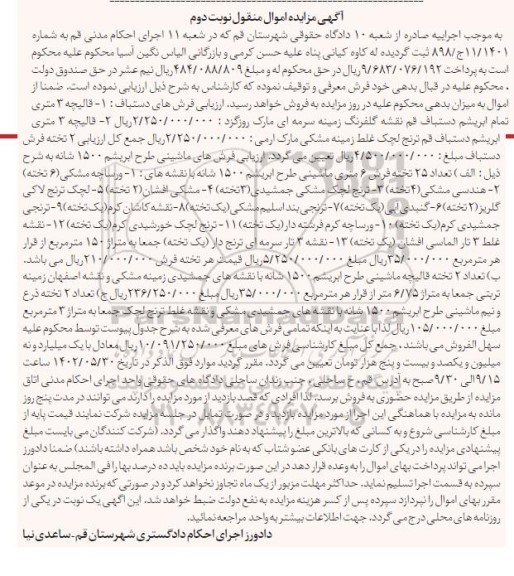 آگهی مزایده اموال منقول نوبت دوم
به موجب اجراییه صادره از شعبه ۱۰ دادگاه حقوقی شهرستان قم که در شعبه ۱۱ اجرای احکام مدنی قم به شماره
۱۱/۱۴۰۱ج/۸۹۸ ثبت گردیده له کاوه کیانی پناه علیه حسن کرمی و بازرگانی الیاس نگین آسیا محکوم علیه محکوم
است به پرداخت ۹/۶۸۳/۰۷۶/۱۹۲ ریال در حق محکوم له و مبلغ ۴۸۴/۰۸۸/۸۰۹ ریال نیم عشر در حق صندوق دولت
، محکوم علیه در قبال بدهی خود فرش معرفی و توقیف نموده که کارشناس به شرح ذیل ارزیابی نموده است. ضمنا از
اموال به میزان بدهی محکوم علیه در روز مزایده به فروش خواهد رسید. ارزیابی فرش های دستباف : ۱- قالیچه ۳ متری
تمام ابریشم دستباف قم نقشه گلفرنگ زمینه سرمه ای مارک روزگرد : ۲/۲۵۰/۰۰۰/۰۰۰ ریال ۲- قالیچه ۳ متری
ابریشم دستباف قم ترنج لچک غلط زمینه مشکی مارک ارمی : ۲/۲۵۰/۰۰۰/۰۰۰ ریال جمع کل ارزیابی ۲ تخته فرش
دستباف مبلغ : ۴/۵۰۰/۰۰۰/۰۰۰ ریال تعیین می گردد. ارزیابی فرش های ماشینی طرح ابریشم ۱۵۰۰ شانه به شرح
ذیل : الف ) تعداد ۲۵ تخته فرش ۶ متری ماشینی طرح ابریشم ۱۵۰۰ شانه با نقشه های : ۱- ورساچه مشکی (۶ تخته)
۲- هندسی مشکی (۴تخته) ۳- ترنج لچک مشکی جمشیدی (۳تخته) ۴- مشکی افشان (۲ تخته) ۵- لچک ترنج لاکی
گلریز (۲ تخته) ۶- گنبدی آبی (یک تخته) ۷- ترنجی بند اسلیم مشکی (یک تخته) ۸- نقشه کاشان کرم (یک تخته) ۹- ترنجی
جمشیدی کرم (یک تخته) ۱۰- ورساچه کرم فرشته دار (یک تخته) ۱۱- ترنج لچک خورشیدی کرم (یک تخته) ۱۲- نقشه
غلط ۳ تار الماسی افشان (یک تخته) ۱۳- نقشه ۳ تار سرمه ای ترنج دار (یک تخته) جمعا به متراژ ۱۵۰ مترمربع از قرار
هر مترمربع ۳۵/۰۰۰/۰۰۰ ریال مبلغ ۵/۲۵۰/۰۰۰/۰۰۰ ریال قیمت هر تخته فرش ۲۱۰/۰۰۰/۰۰۰ ریال می باشد.
ب) تعداد ۲ تخته قالیچه ماشینی طرح ابریشم ۱۵۰۰ شانه با نقشه های جمشیدی زمینه مشکی و نقشه اصفهان زمینه
تربتی جمعا به متراژ ۶/۷۵ متر از قرار هر مترمربع ۳۵/۰۰۰/۰۰۰ ریال مبلغ ۲۳۶/۲۵۰/۰۰۰ ریال ج) تعداد ۲ تخته ذرع
و نیم ماشینی طرح ابریشم ۱۵۰۰ شانه با نقشه های جمشیدی مشکی و نقشه غلط ترنج لچک جمعا به متراژ ۳ مترمربع
مبلغ ۱۰۵/۰۰۰/۰۰۰ ریال لذا با عنایت به اینکه تمامی فرش های معرفی شده به شرح جدول پیوست توسط محکوم علیه
سهل الفروش می باشند. جمع کل مبلغ کارشناسی فرش های مبلغ ۱۰/۰۹۱/۲۵۰/۰۰۰ ریال معادل با یک میلیارد و نه
میلیون و یکصد و بیست و پنج هزار تومان تعیین می گردد. مقرر گردید موارد فوق الذکر در تاریخ ۱۴۰۲/۰۵/۳۰ ساعت
۹/۱۵ الی ۹/۳۰ صبح به آدرس قم، خ ساحلی، جنب زندان ساحلی دادگاه های حقوقی واحد اجرای احکام مدنی اتاق
مزایده از طریق مزایده حضوری به فروش برسد. لذا افرادی که قصد بازدید از مورد مزایده را دارند می توانند در مدت پنج روز
مانده به مزایده با هماهنگی این اجرا از مورد مزایده بازدید و در صورت تمایل در جلسه مزایده شرکت نمایند قیمت پایه از
مبلغ کارشناسی شروع و به کسانی که بالاترین مبلغ را پیشنهاد دهند واگذار می گردد. (شرکت کنندگان می بایست مبلغ
پیشنهادی مزایده را در یکی از کارت های بانکی عضو شتاب که به نام خود شخص باشد همراه داشته باشند) ضمنا دادورز
اجرا می تواند پرداخت بهای اموال را به وعده قرار دهد در این صورت برنده مزایده باید ده درصد بها را فی المجلس به عنوان
سپرده به قسمت اجرا تسلیم نماید. حداکثر مهلت مزبور از یک ماه تجاوز نخواهد کرد و در صورتی که برنده مزایده در موعد
مقرر بهای اموال را نپردازد سپرده پس از کسر هزینه مزایده به نفع دولت ضبط خواهد شد. این آگهی یک نوبت در یکی از
روزنامه های محلی درج می گردد. جهت اطلاعات بیشتر به واحد مراجعه نمائید.
دادورز اجرای احکام دادگستری شهرستان قم - ساعدی نیا